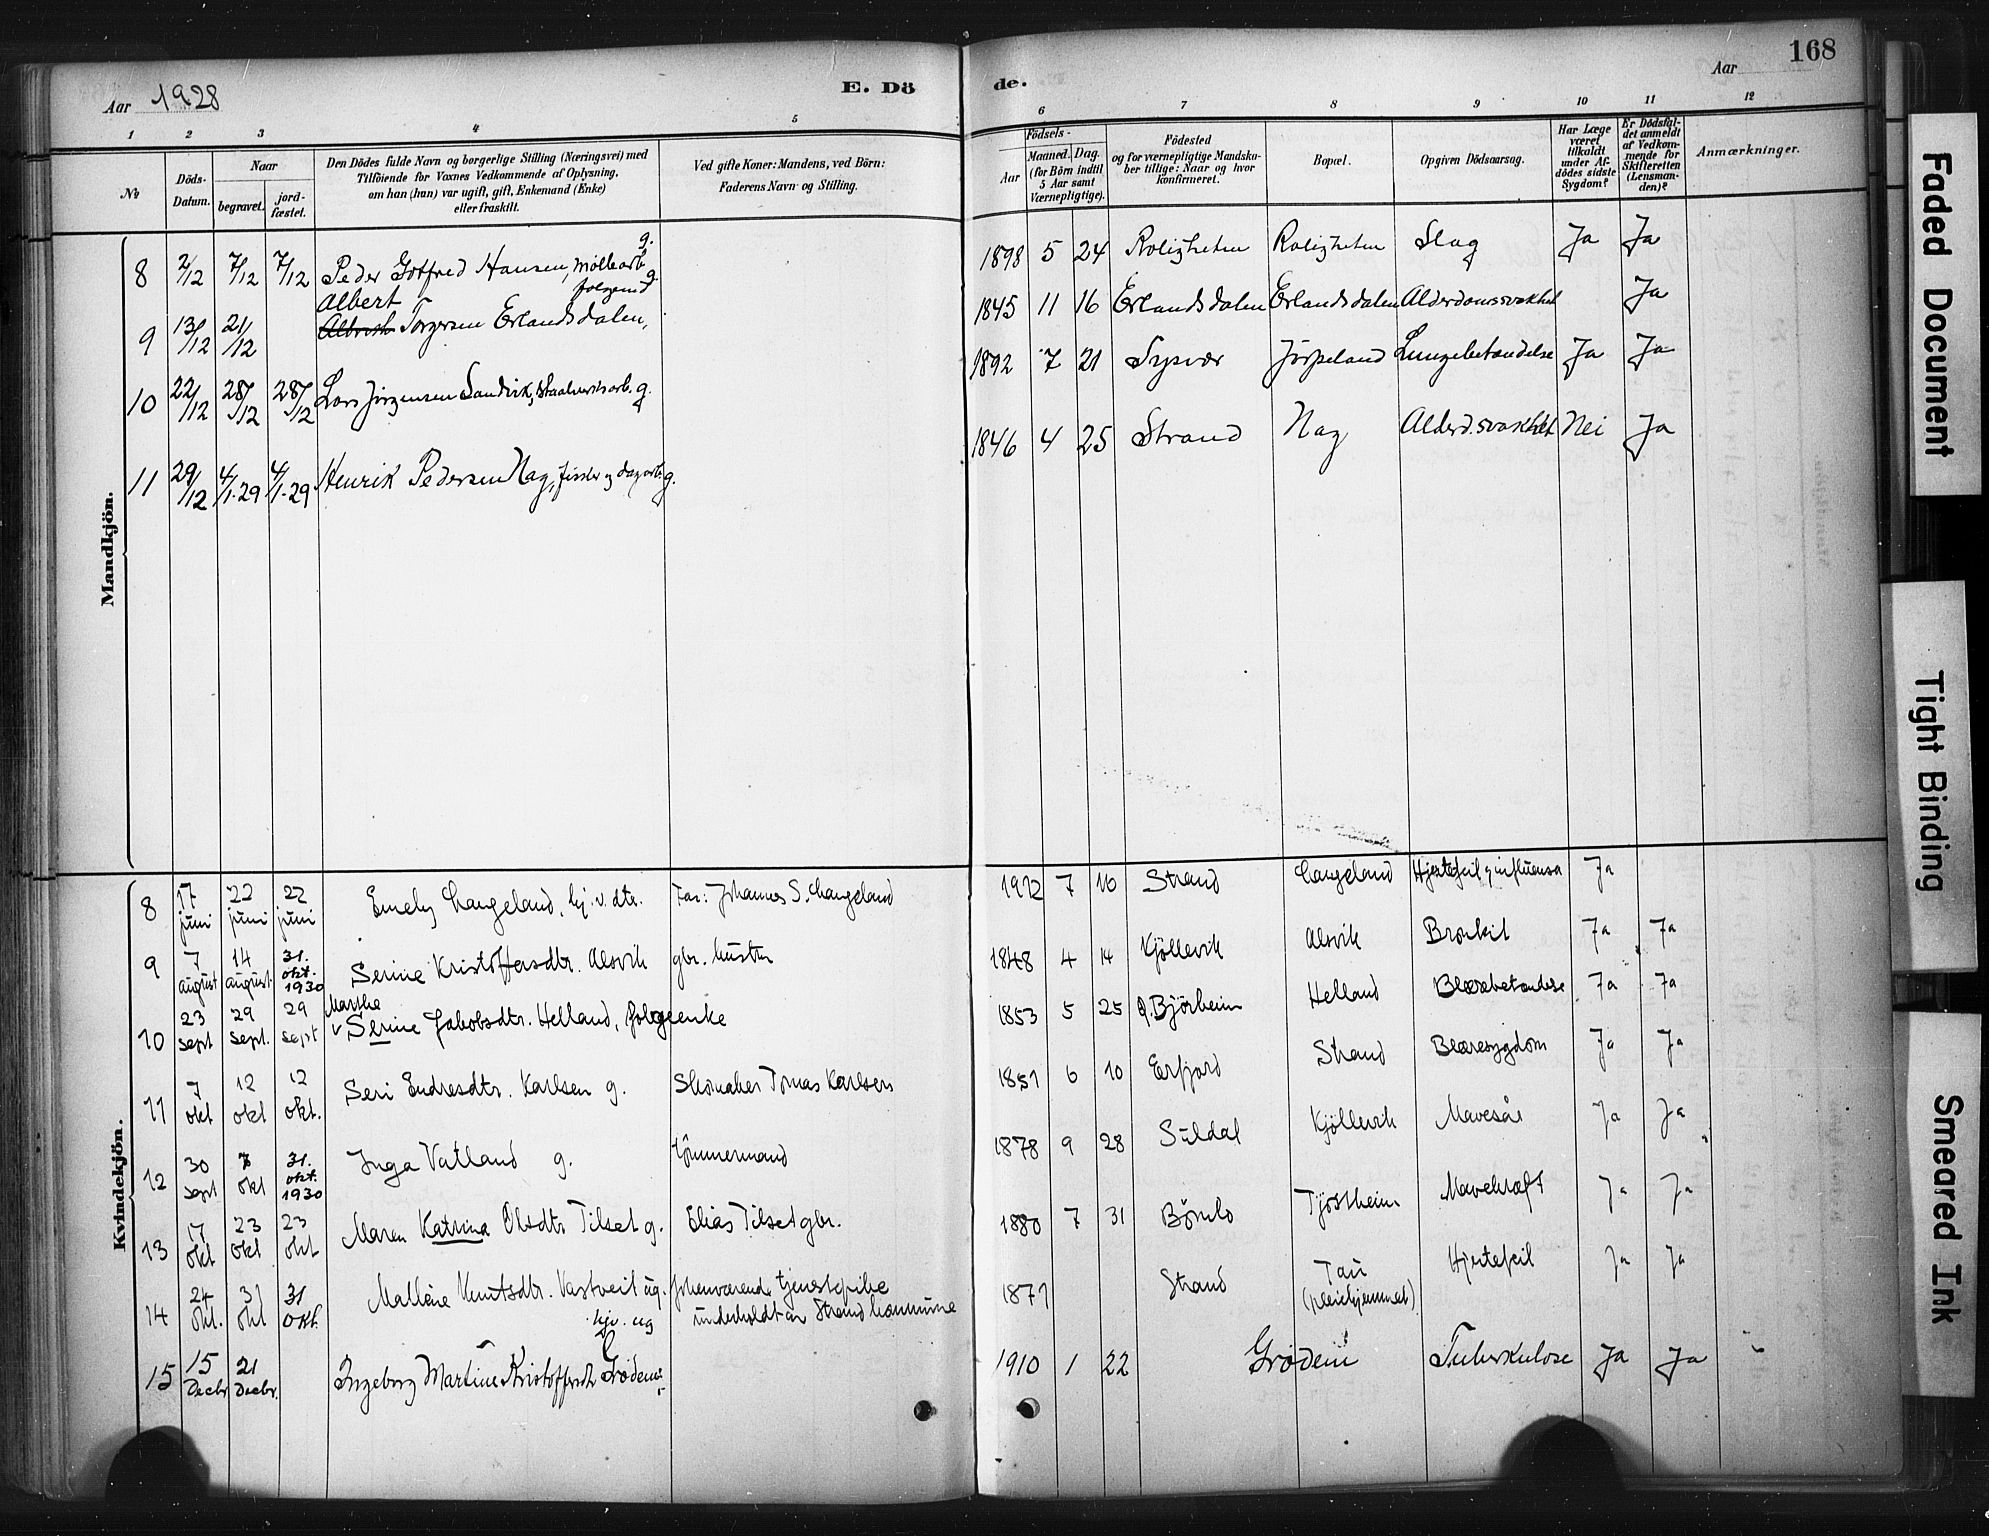 168
Aar 1928
E. Dö
de.
Aar
1 2 3 4 5 6 7 8 9 10 11 12
№
Döds-Datum.
Naar
begravet.
jord-fæstet.
Den Dödes fulde Navn og borgerlige Stilling (Næringsvei) med
Tilföiende for Voxnes Vedkommende af Oplysning,
om han (hun) var ugift, gift, Enkemand (Enke)
eller fraskilt.
Ved gifte Koner: Mandens, ved Börn:
Faderens Navn og Stilling.
Födsels-
Aar
Maaned. Dag.
(for Börn indtil
5 Aar samt
Værnepligtige).
Födested
og for værnepligtige Mandska-
ber tillige: Naar og hvor
konfirmeret.
Bopæl.
Opgiven Dödsaarsag.
Har Læge
været
tilkaldt
under Af-
dödes sidste
Sygdom?
Er Dödsfal-
det anmeldt
af Vedkom-
mende for
Skifteretten
(Lensman-
den)?
Anmærkninger.
Mandkjön.
8 2/12 7/12 7/12 Peder Gotfred Hansen, Möllearb. g. 1898 5 24 Roligheten Roligheten Slag Ja Ja
9 13/12 21/12 Albert Torgersen Erlandsdalen, folgemd g. 1845 11 16 Erlandsdalen Erlandsdalen Alderdomssvakhet Ja
10 22/12 28/12 28/12 Lars Jörgensen Sandvik, Staalverksarb. g. 1892 7 21 Jörpeland Lungebetændelse Ja Ja
11 29/12 4/1-29 4/1-29 Henrik Pedersen Nag, fisker og dagarb. g. 1846 4 25 Strand Nag Alderd.svakhet Nei Ja
Kvindekjön.
8 17 juni 22 juni 22 juni Emely Langeland, hj. v. dtr. Far: Johannes S. Langeland 1912 7 16 Strand Langeland Hjertefeil og influensa Ja
9 7 august 14 august. 31. okt. 1930 Serine Kristoffersdtr. Alsvik gbr. hustru 1848 4 14 Kjöllevik Alsvik Bronkit Ja Ja
10 23 sept 29 sept. 29 sept Marthe Serine Jakobsdtr. Helland, folgeenke 1853 5 25 Ö. Björheim Helland Blærebetændelse Ja Ja
11 7 okt 12 okt 12 okt. Seri Endresdtr. Karlsen g. Skomaker Tomas Karlsen 1851 6 10 Erfjord Strand Blæresygdom Ja Ja
12 30 sept 7 okt 31. okt. 1930 Inga Vatland g. tömmermand 1878 9 28 Suldal Kjöllevik Mavesår Ja Ja
13 17 okt 23 okt 23 okt Maren Katrina Olsdtr Tilset g. Elias Tilset gbr. 1880 7 31 Bömlo Tjöstheim Mavekræft Ja Ja
14 24 okt. 31 okt 31 okt. Malléne Knutsdtr. Vastveit ug. forhenværende tjenestepike
underholdt av Strand kommune 1871 Strand Tau
(pleiehjemmet) Hjertefeil Ja Ja
15 15 Decbr 21 Decbr. Ingeborg Martine Kristoffersdtr Grödem hjv. ug 1910 1 22 Grödem Tuberkulose Ja Ja
Faded Document
Tight Binding
Smeared Ink